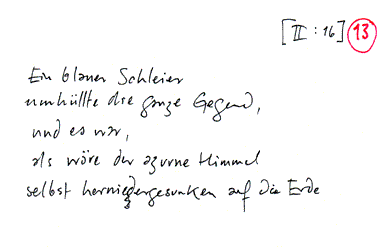 [II : 16] 13
Ein blauer Schleier
umhüllte die ganze Gegend,
und es war,
als wäre der azurne Himmel
selbst herniedergesunken auf die Erde